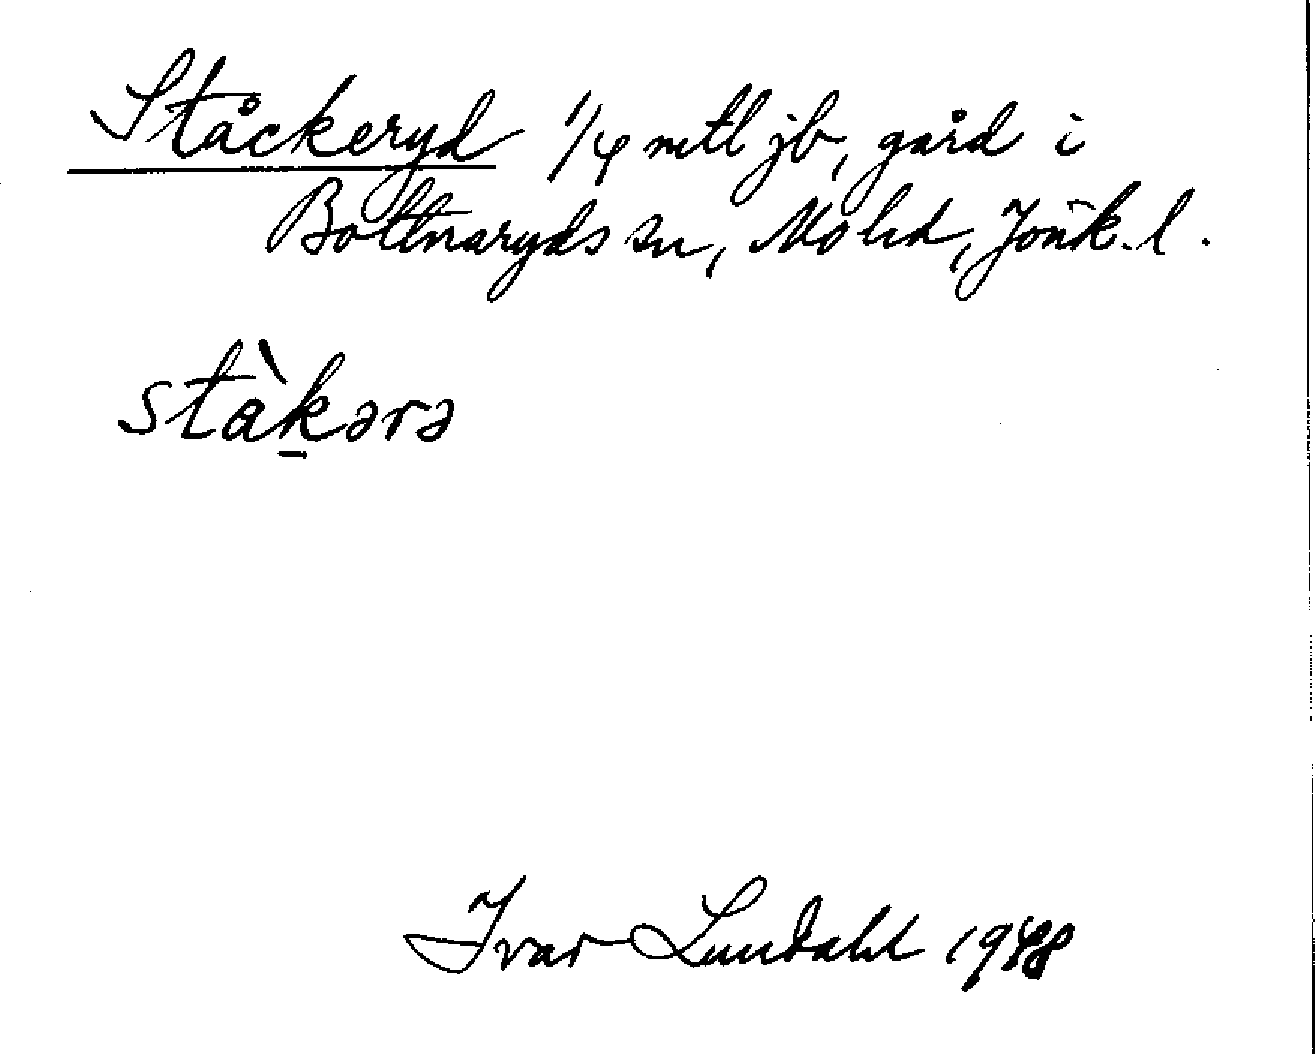 Ståckeryd 1/4 mtl jb, gård i
Bottnaryds sn, Mo hd, Jönk. l.
stàkərə
Ivar Lundahl 1948